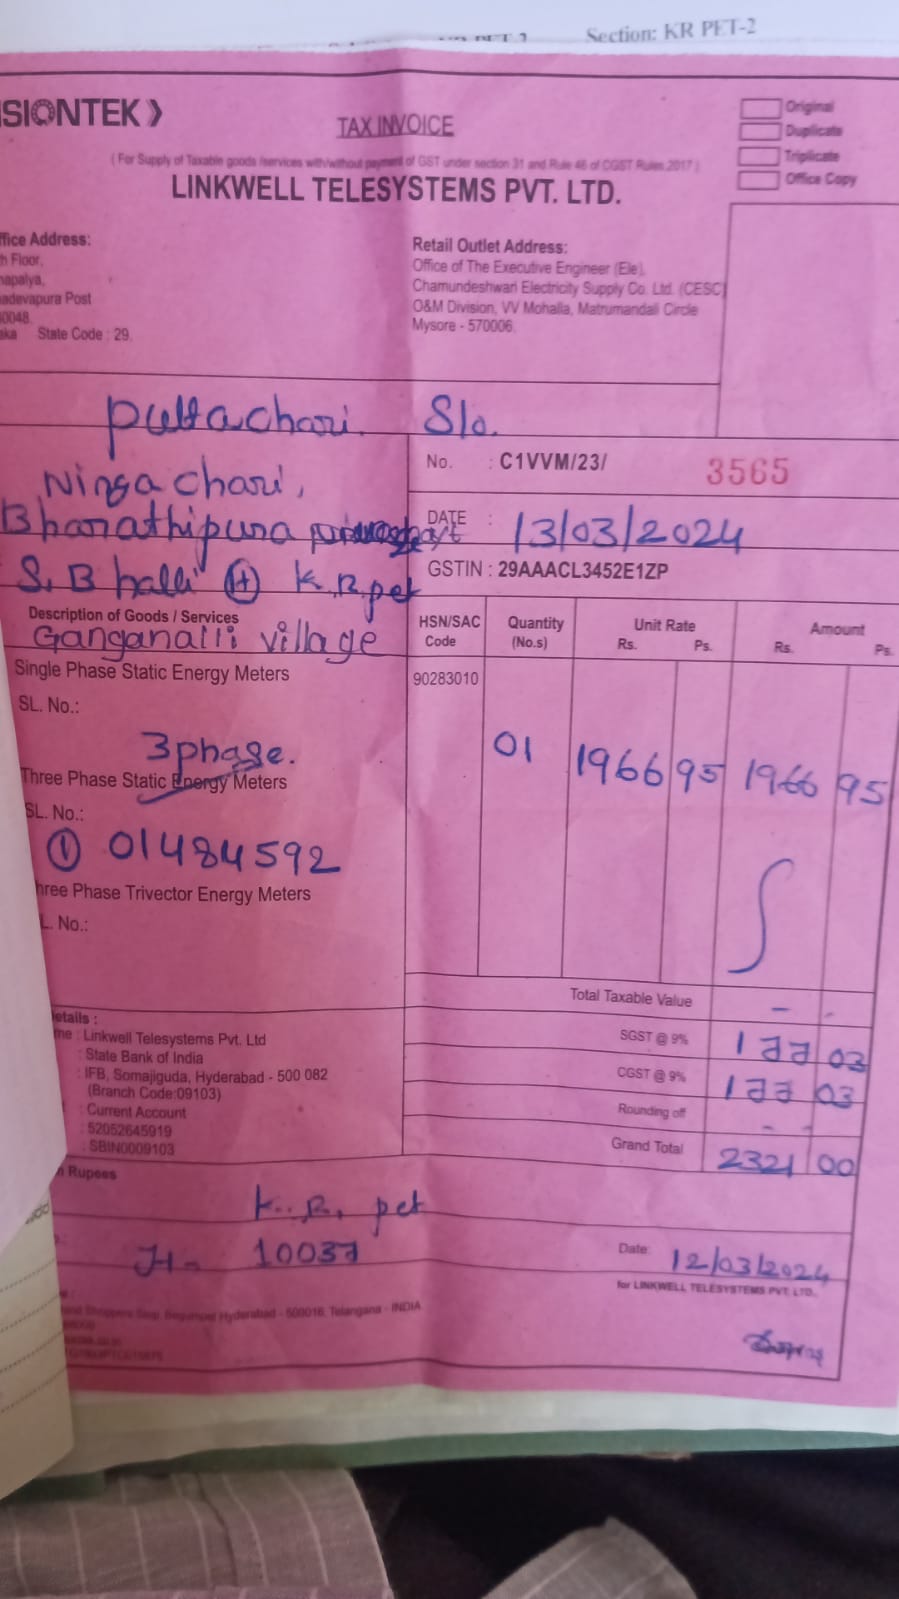 Section: KR PET-2
SIONTEK
TAX INVOICE
Original
Duplicate
Triplicate
Office Copy
( For Supply of Taxable goods /services with/without payment of GST under section 31 and Rule 46 of CGST Rules 2017 )
LINKWELL TELESYSTEMS PVT. LTD.
ffice Address:
h Floor,
napalya,
adevapura Post
0048.
aka State Code : 29.
Retail Outlet Address:
Office of The Executive Engineer (Ele),
Chamundeshwari Electricity Supply Co. Ltd. (CESC)
O&M Division, VV Mohalla, Matrumandali Circle
Mysore - 570006.
puttachari. S/o.
Ningachari,
Bharathipura
S.B halli (H) K.R.pet
Ganganalli village
No. : C1VVM/23/ 3565
DATE : 13/03/2024
GSTIN : 29AAACL3452E1ZP
Description of Goods / Services
HSN/SAC Code
Quantity (No.s)
Unit Rate Rs. Ps.
Amount Rs. Ps.
Single Phase Static Energy Meters 90283010
SL. No.:
3phase. 01 1966 95 1966 95
Three Phase Static Energy Meters
SL. No.:
① 01484592
hree Phase Trivector Energy Meters
L. No.:
Total Taxable Value - -
SGST @ 9% 177 03
CGST @ 9% 177 03
Rounding off - -
Grand Total 2321 00
etails :
me : Linkwell Telesystems Pvt. Ltd
: State Bank of India
: IFB, Somajiguda, Hyderabad - 500 082
(Branch Code:09103)
: Current Account
: 52052645919
: SBIN0009103
n Rupees
K.R. pet
10037
Date: 12/03/2024
for LINKWELL TELESYSTEMS PVT. LTD.,
Begumpet Hyderabad - 500016, Telangana - INDIA